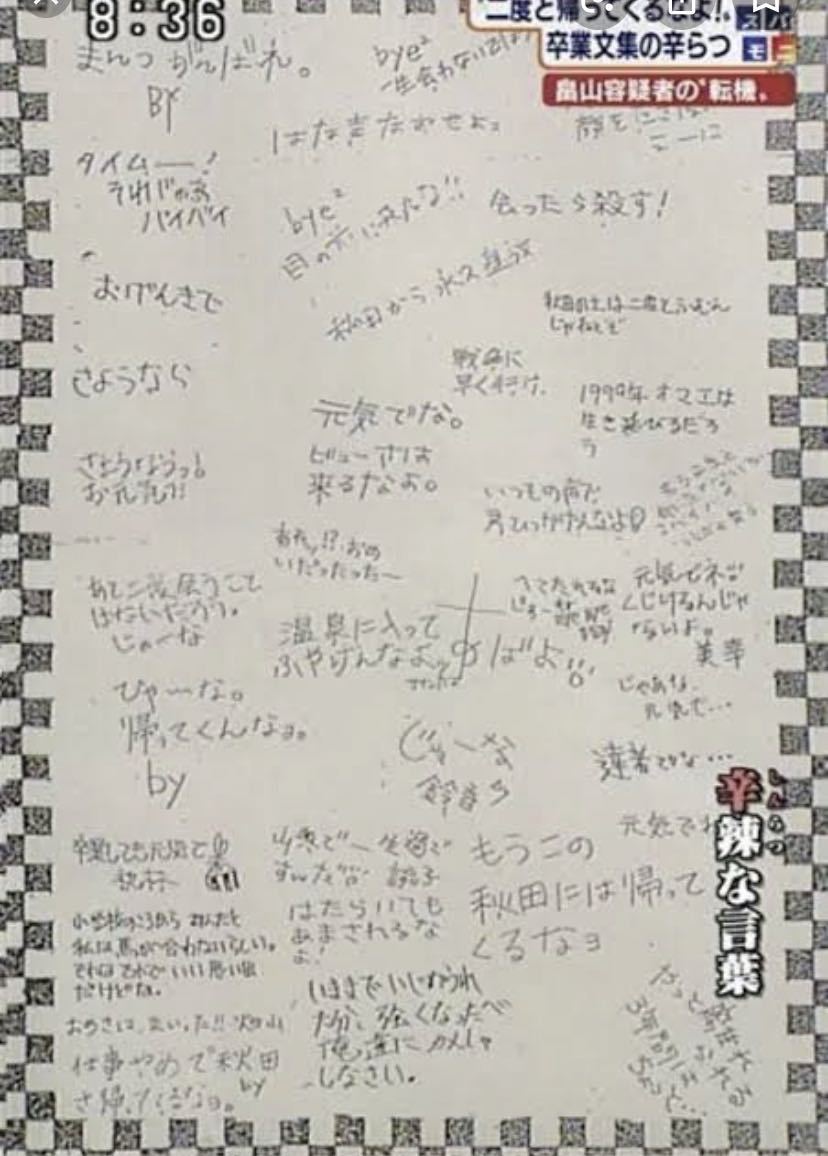 8:36
"二度と帰ってくるなよ!"
卒業文集の辛らつ
スパモニ
畠山容疑者の"転機"
まんつがんばれ。
By
bye²
一生会わない
はな声なおせよ。
顔を
タイムー!
それじゃあ
バイバイ
bye²
目の前に来んな!!
会ったら殺す!
おげんきで
秋田から永久追放
秋田の土は二度とふむん
じゃねえぞ
さようなら
戦争に
早く行け。
1999年オマエは
生き延びるだろ
う
元気でな。
ビューさは
来るなよ。
さようならっ!
お元気で!
いつもの
あれッ!?おめ
いだったった〜
あと二度会うこと
はないだろう。
じゃーな
温泉に入って
ふやけんなよッ
元気で
くじけるんじゃ
ないよ。
美幸
ばよ!!
じゃあな
元気で…
びゃーな。
帰ってくんなよ。
by
じゃーな
達者でな…
元気でね
卒業しても元気で
山奥で一生過ご
すんだ
もうこの
秋田には帰って
くるなョ
はたらいても
あまされるな
よ!
小学校のころから あんたと
私は馬が合わないらしい。
それはそれでいい思い出
だけどな。
いままでいじめられ
た分、強くなったべ
俺達にカンしゃ
しなさい。
おめさは、まいった!!
仕事やめて秋田
さ帰ってくるなョ。
by
3年間
辛辣な言葉
しんらつ